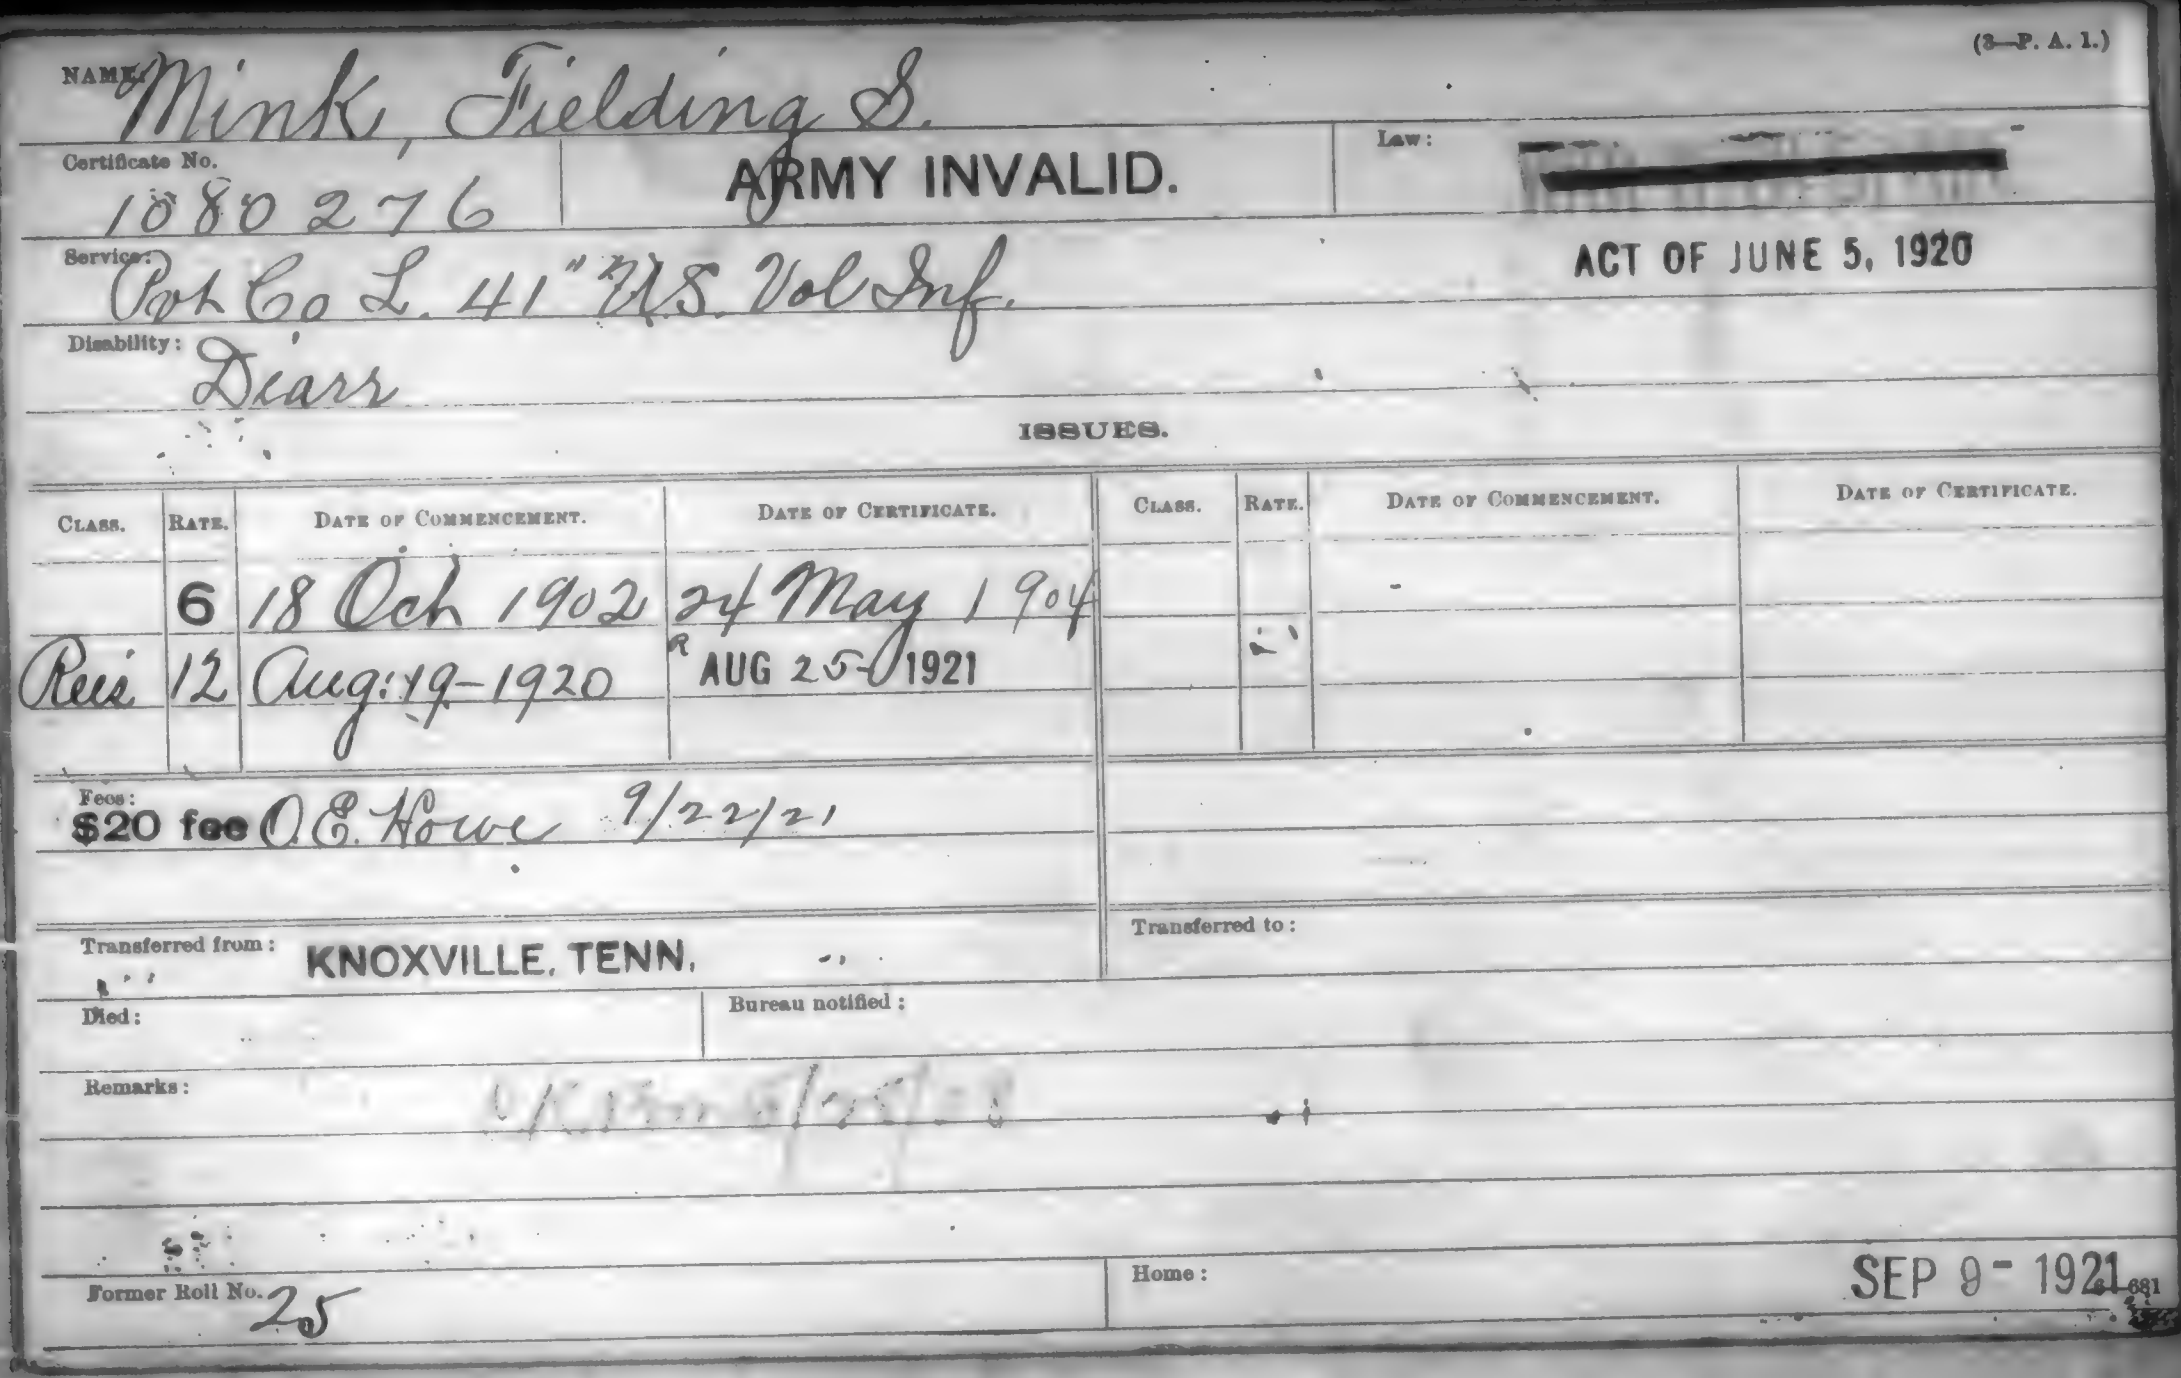 (3—P. A. 1.)
NAME: Mink, Fielding S.
Certificate No. 1080276
ARMY INVALID.
Law:
ACT OF JUNE 5, 1920
Service: Pvt Co L. 41" U.S. Vol Inf.
Disability: Diarr
ISSUES.
CLASS. RATE. DATE OF COMMENCEMENT. DATE OF CERTIFICATE. CLASS. RATE. DATE OF COMMENCEMENT. DATE OF CERTIFICATE.
6 18 Oct 1902 24 May 1904
Reis 12 Aug: 19-1920 R AUG 25 1921
Fees:
$20 fee O.E. Howe 9/22/21
Transferred from: KNOXVILLE, TENN.
Transferred to:
Died:
Bureau notified:
Remarks:
Former Roll No. 25
Home:
SEP 9 - 1921